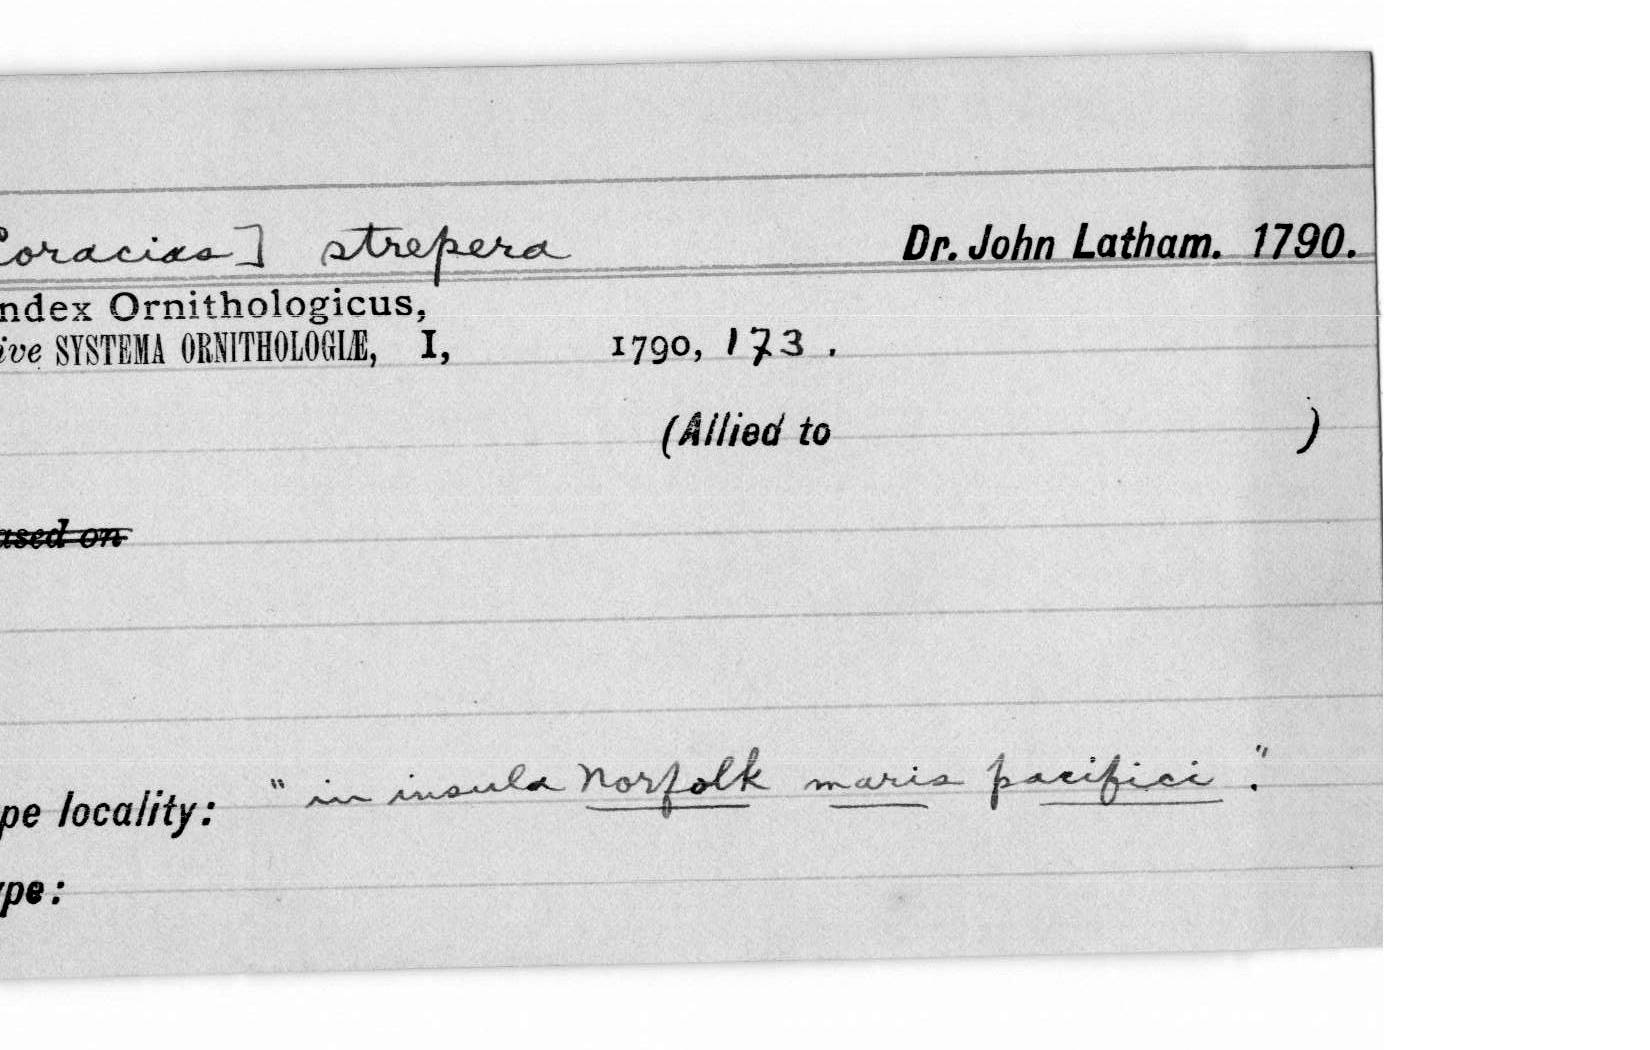 Coracias] strepera Dr. John Latham. 1790.
ndex Ornithologicus,
ive SYSTEMA ORNITHOLOGIÆ, I, 1790, 173.
(Allied to )
ased on
pe locality: "in insula Norfolk maris pacifici."
ype: